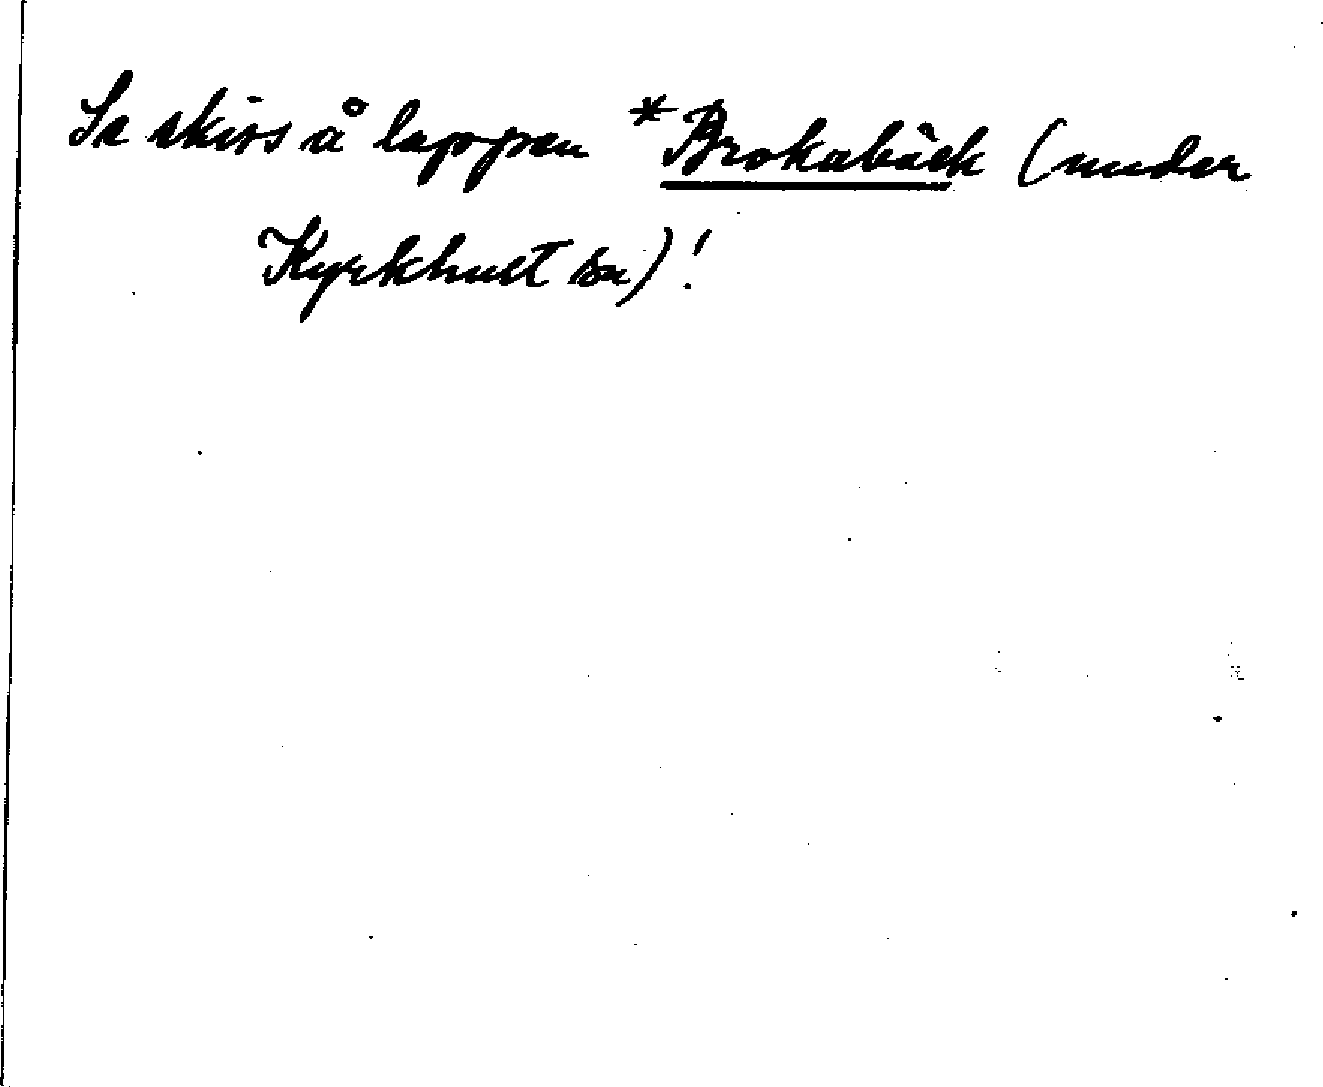 Se skiss å lappen *Brokabäck (under
Kyrkhult sn)!